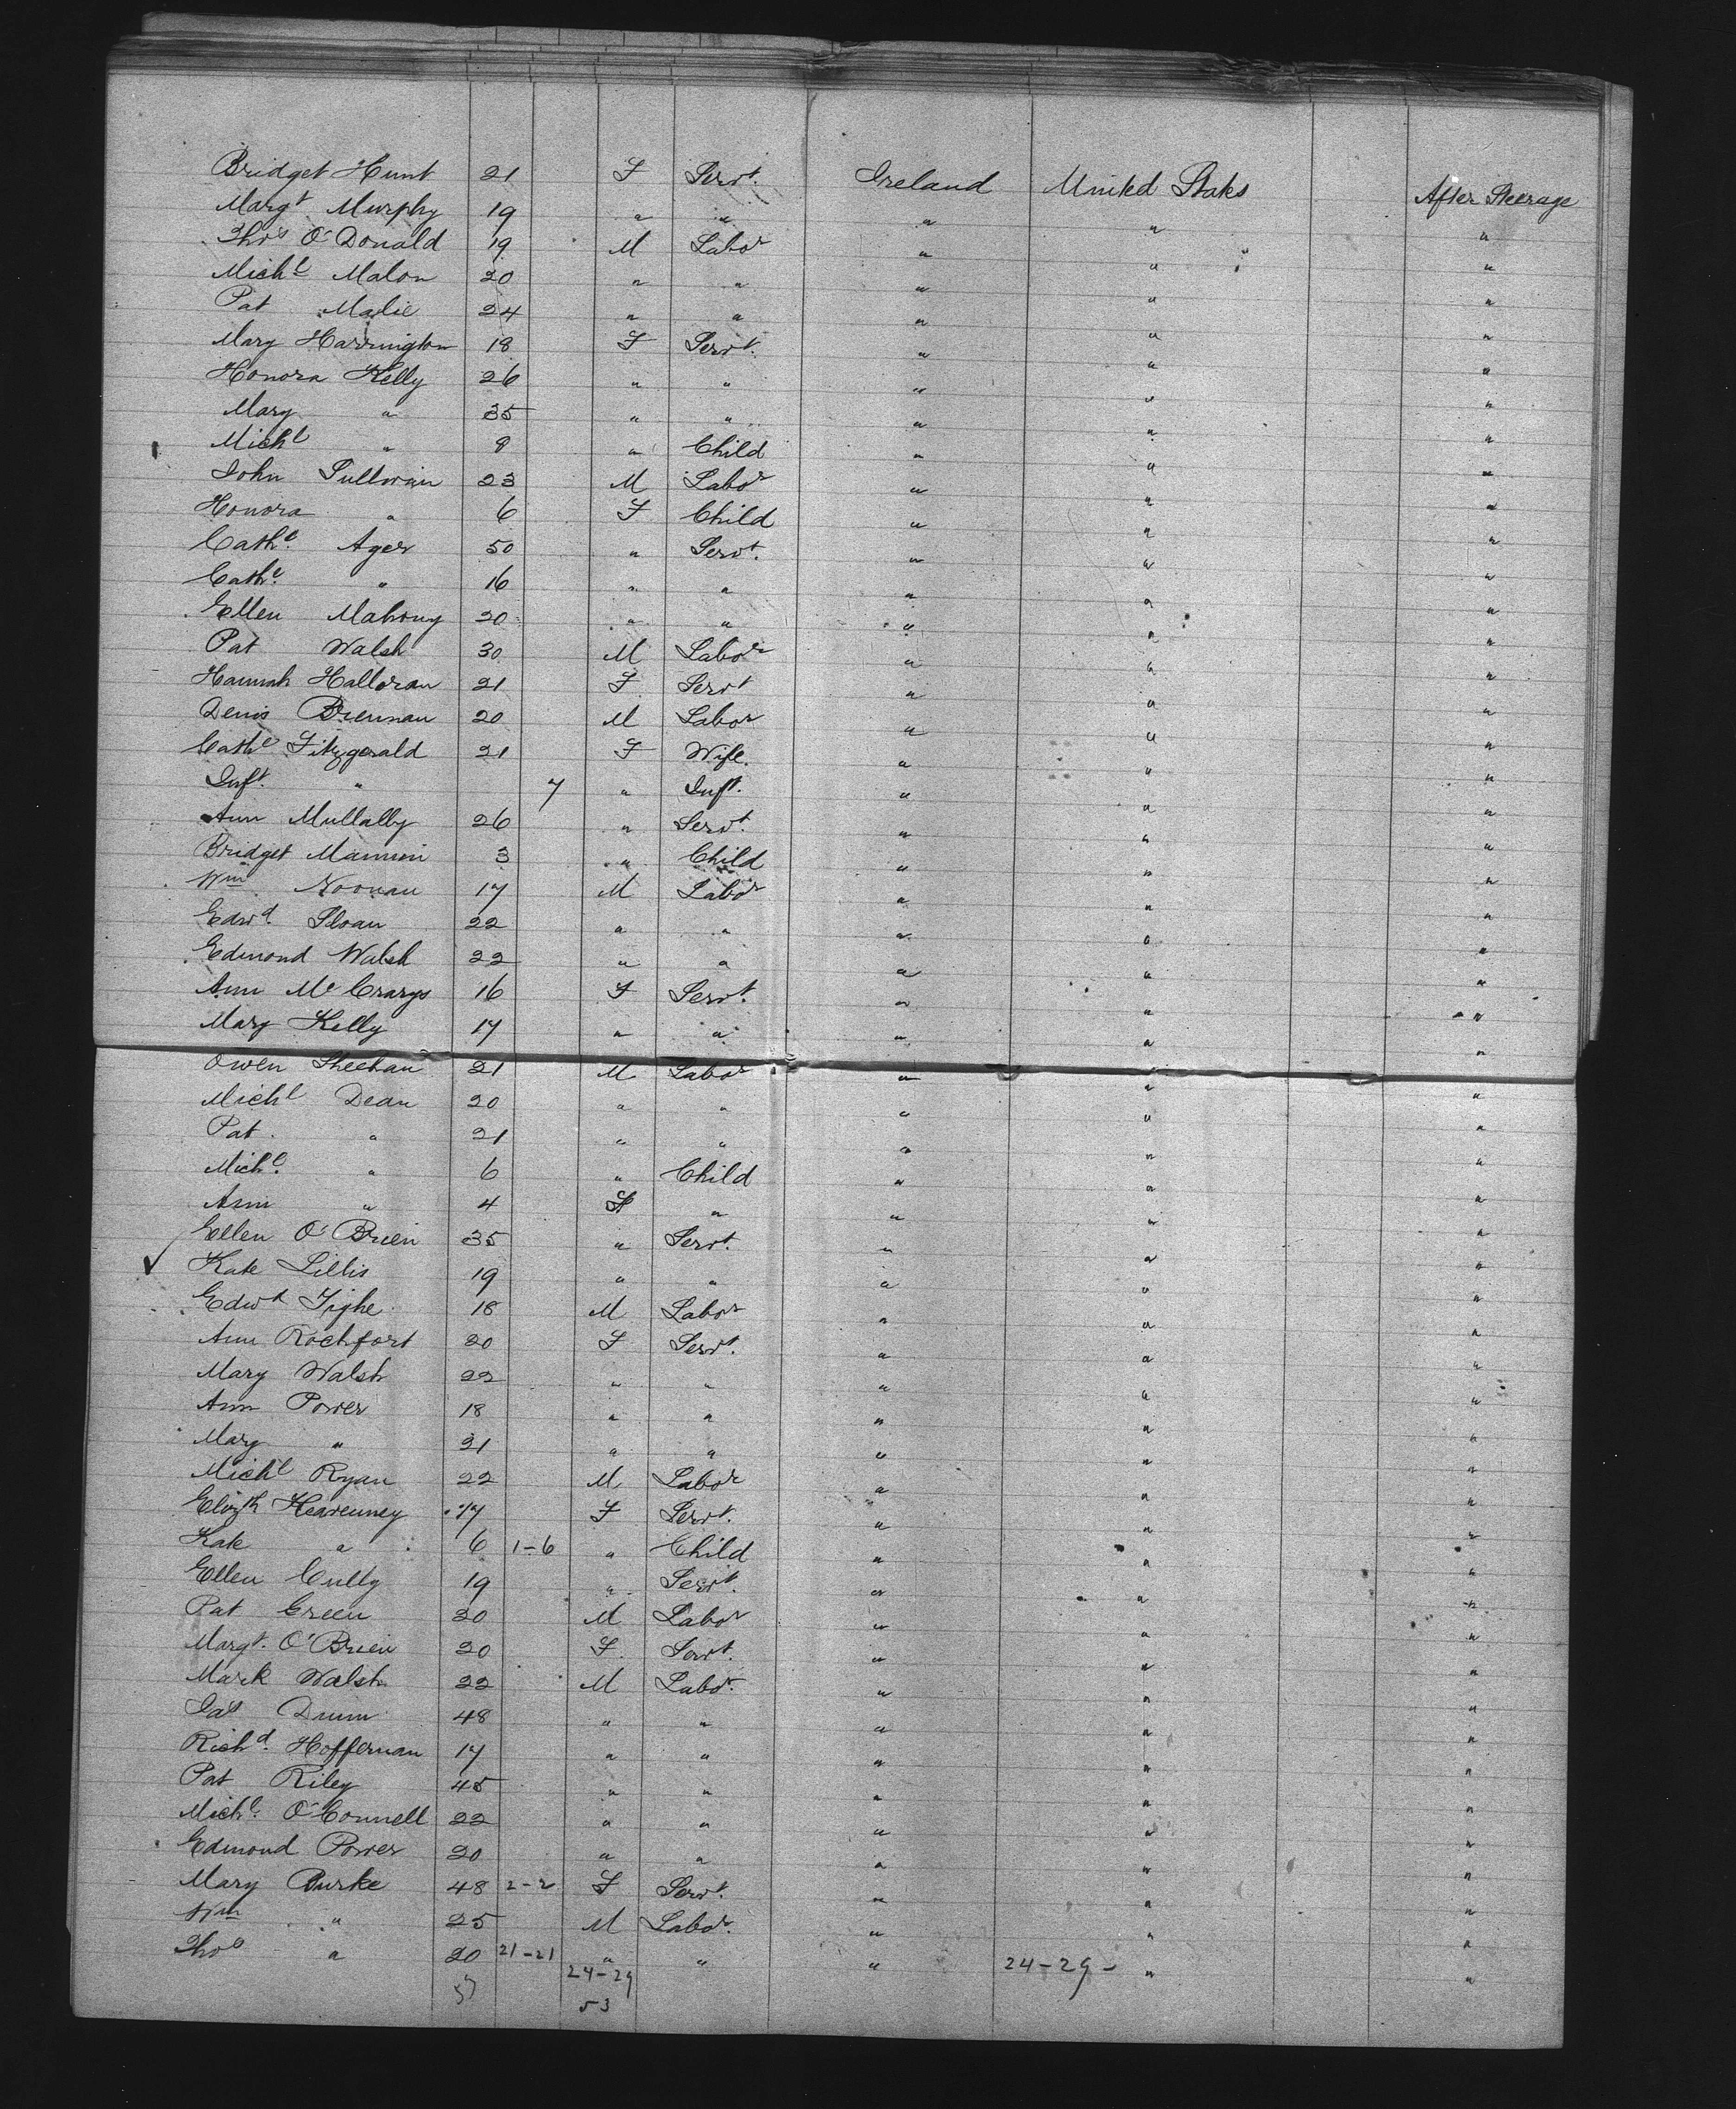 Bridget Hunt 21 F Servt. Ireland United States After Steerage
Margt Murphy 19 " " " " "
Thos O'Donald 19 M Labor " " "
Michl Malon 20 " " " " "
Pat 24 " " " " "
Mary Harrington 18 F Servt. " " "
Honora Kelly 26 " " " " "
Mary " 35 " " " " "
Michl " 8 " Child " " "
John Sullivan 23 M Labor " " "
Honora " 6 F Child " " "
Cathe. Ager 50 " Servt. " " "
Cathe. " 16 " " " " "
Ellen Mahony 20 " " " " "
Pat Walsh 30 M Labor " " "
Hannah Halloran 21 F Servt " " "
Denis Brennan 20 M Labor " " "
Cathe Fitzgerald 21 F Wife. " " "
Inft. " 7 " Inft. " " "
Ann Mullally 26 " Servt. " " "
Bridget 3 " Child " " "
Wm Noonan 17 M Labor " " "
Edwd. Sloan 22 " " " " "
Edmond Walsh 22 " " " " "
Ann Mc 16 F Servt. " " "
Mary Kelly 17 " " " " "
Owen Sheehan 21 M Labor " " "
Michl Dean 20 " " " " "
Pat. " 21 " " " " "
Michl. " 6 " Child " " "
Ann " 4 F " " " "
Ellen O'Brien 35 " Servt. " " "
Kate Lillis 19 " " " " "
Edwd Tighe 18 M Labor " " "
Ann Rochfort 20 F Servt. " " "
Mary Walsh 22 " " " " "
Ann Power 18 " " " " "
Mary " 21 " " " " "
Michl Ryan 22 M Labor " " "
Elizth Heavenney 17 F Servt. " " "
Kate " 6 1-6 " Child " " "
Ellen Cully 19 " Servt. " " "
Pat Green 20 M Labor " " "
Margt. O'Brien 20 F. Servt. " " "
Mark Walsh 22 M Labor. " " "
Jas Drum 48 " " " " "
Richd. Hoffernan 17 " " " " "
Pat Riley 45 " " " " "
Michl. O'Connell 22 " " " " "
Edmond Power 20 " " " " "
Mary Burke 48 2-2 F Servt. " " "
Wm " 25 M Labor. " " "
Thos " 20 21-21 " " " 24-29- " "
24-29
53